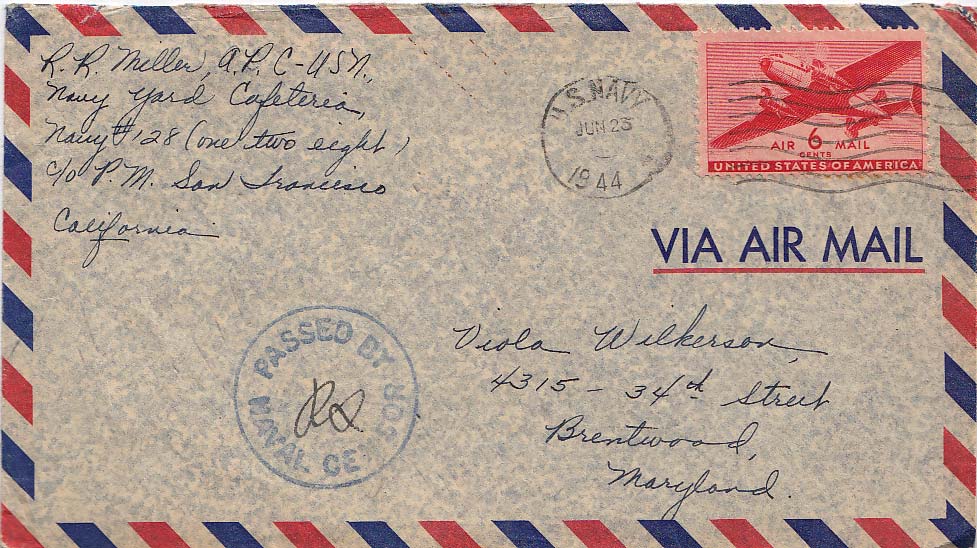 R. R. Meller, A.P.C-USN.,
Navy Yard Cafeteria
Navy #128 (one two eight)
c/o P.M. San Francisco
California
U.S. NAVY
JUN 23
1944
AIR 6 MAIL
CENTS
UNITED STATES OF AMERICA
VIA AIR MAIL
PASSED BY
NAVAL
Viola Wilkerson,
4315 - 34th Street
Brentwood,
Maryland.